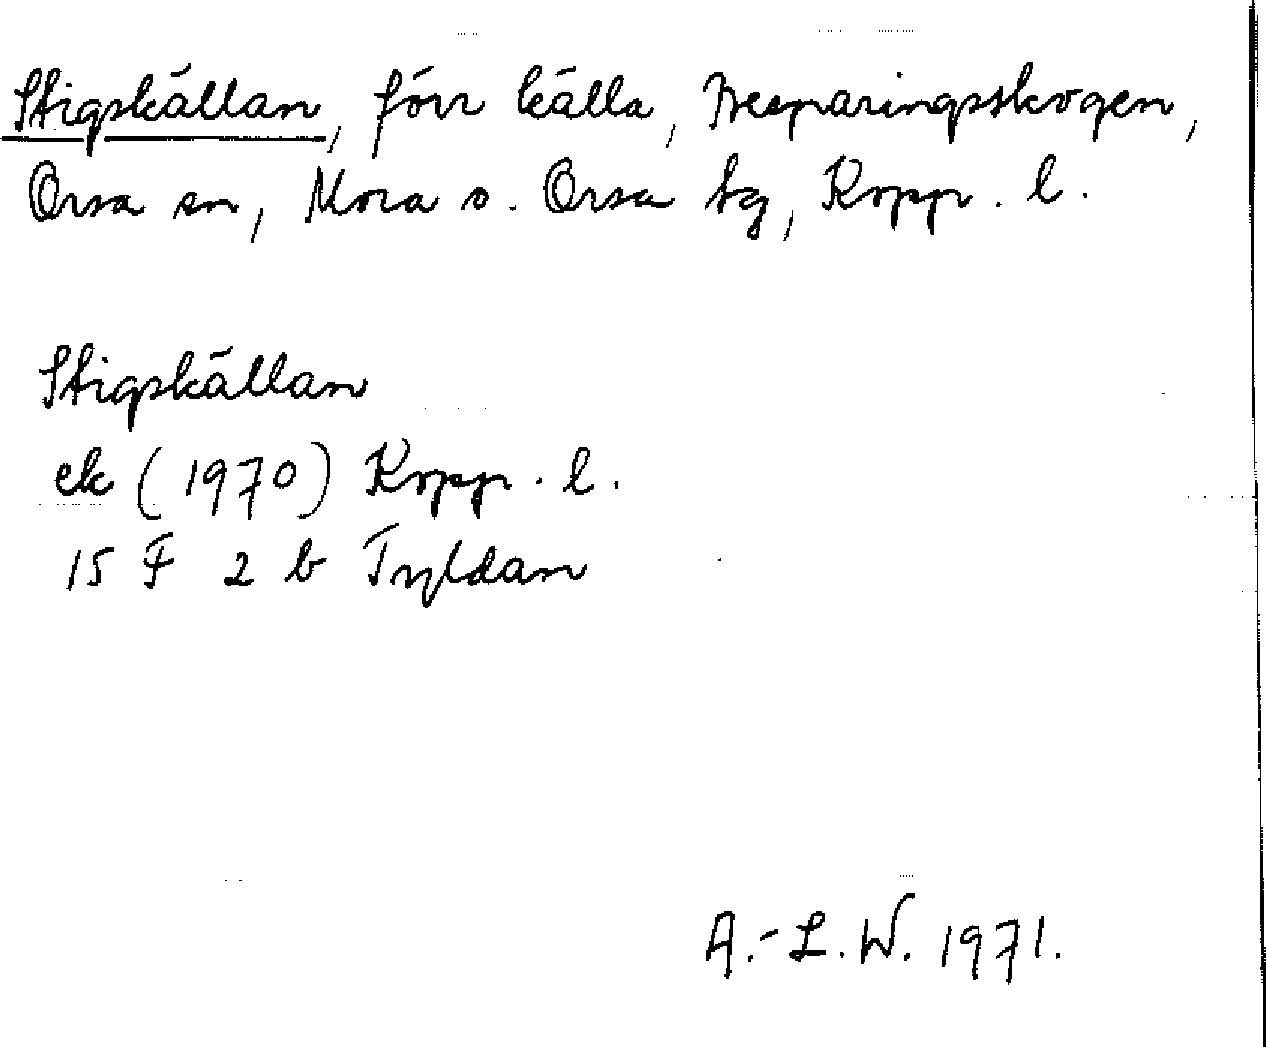 Stigskällan, förr källa, Besparingsskogen,
Orsa sn, Mora o. Orsa tg, Kopp. l.
Stigskällan
ek (1970) Kopp. l.
15 F 2 b Tryldan
A.-L.W. 1971.